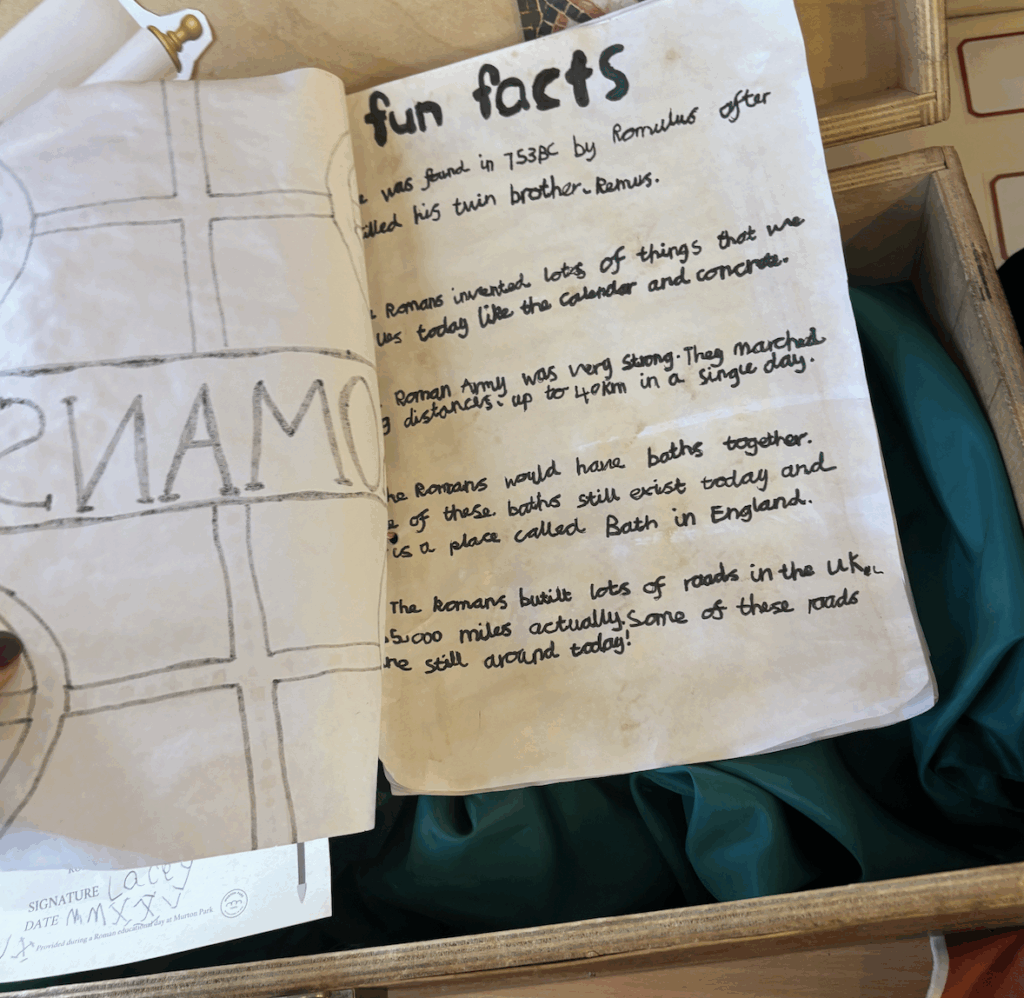 fun facts
was found in 753BC by Romulus after
illed his twin brother. Remus.
Romans invented lots of things that we
ues today like the calender and concrete.
Roman Army was very strong. They marched
g distances. up to 40km in a single day.
he Romans would have baths together.
e of these baths still exist today and
is a place called Bath in England.
The Romans butilt lots of roads in the UK.
5,000 miles actually. Some of these roads
re still around today!
OMANS
SIGNATURE Lacey
DATE MMXXV
Provided during a Roman educational day at Murton Park.